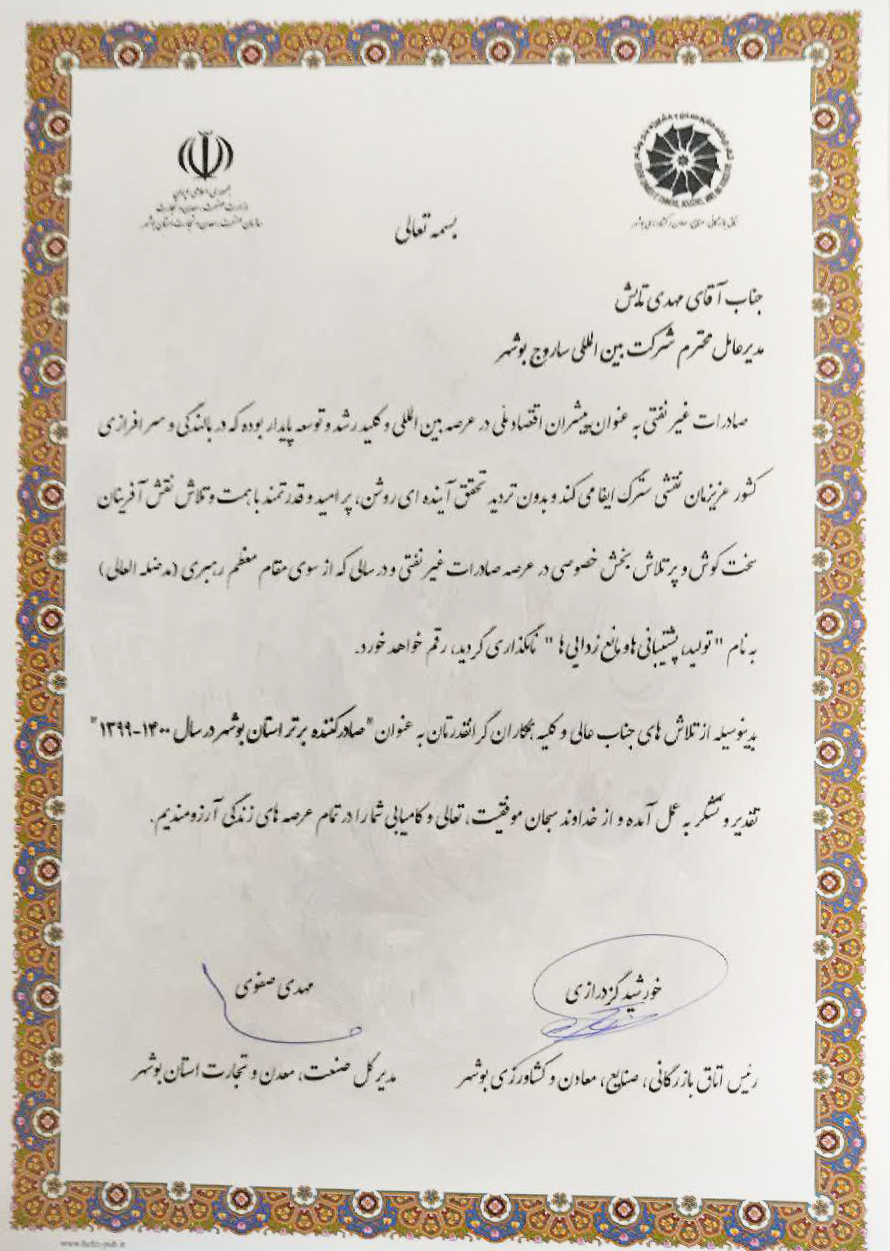 جمهوری اسلامی ایران
وزارت صنعت، معدن و تجارت
سازمان صنعت، معدن و تجارت استان بوشهر
اتاق بازرگانی، صنایع، معادن و کشاورزی بوشهر
بسمه تعالی
جناب آقای مهدی تابش
مدیرعامل محترم شرکت بین المللی ساروج بوشهر
صادرات غیر نفتی به عنوان پیشران اقتصاد ملی در عرصه بین المللی و کلید رشد و توسعه پایدار بوده که در بالندگی و سرافرازی
کشور عزیزمان نقشی سترگ ایفا می کند و بدون تردید تحقق آینده ای روشن، پر امید و قدرتمند با همت و تلاش نقش آفرینان
سخت کوش و پرتلاش بخش خصوصی در عرصه صادرات غیر نفتی و در سالی که از سوی مقام معظم رهبری (مدضله العالی)
به نام " تولید، پشتیبانی ها و مانع زدایی ها " نامگذاری گردید، رقم خواهد خورد.
بدینوسیله از تلاش های جناب عالی و کلیه همکاران گرانقدرتان به عنوان "صادرکننده برتر استان بوشهر در سال ۱۴۰۰-۱۳۹۹"
تقدیر و تشکر به عمل آمده و از خداوند سبحان موفقیت، تعالی و کامیابی شما را در تمام عرصه های زندگی آرزومندیم.
خورشید گزدرازی
رئیس اتاق بازرگانی، صنایع، معادن و کشاورزی بوشهر
مهدی صفوی
مدیر کل صنعت، معدن و تجارت استان بوشهر